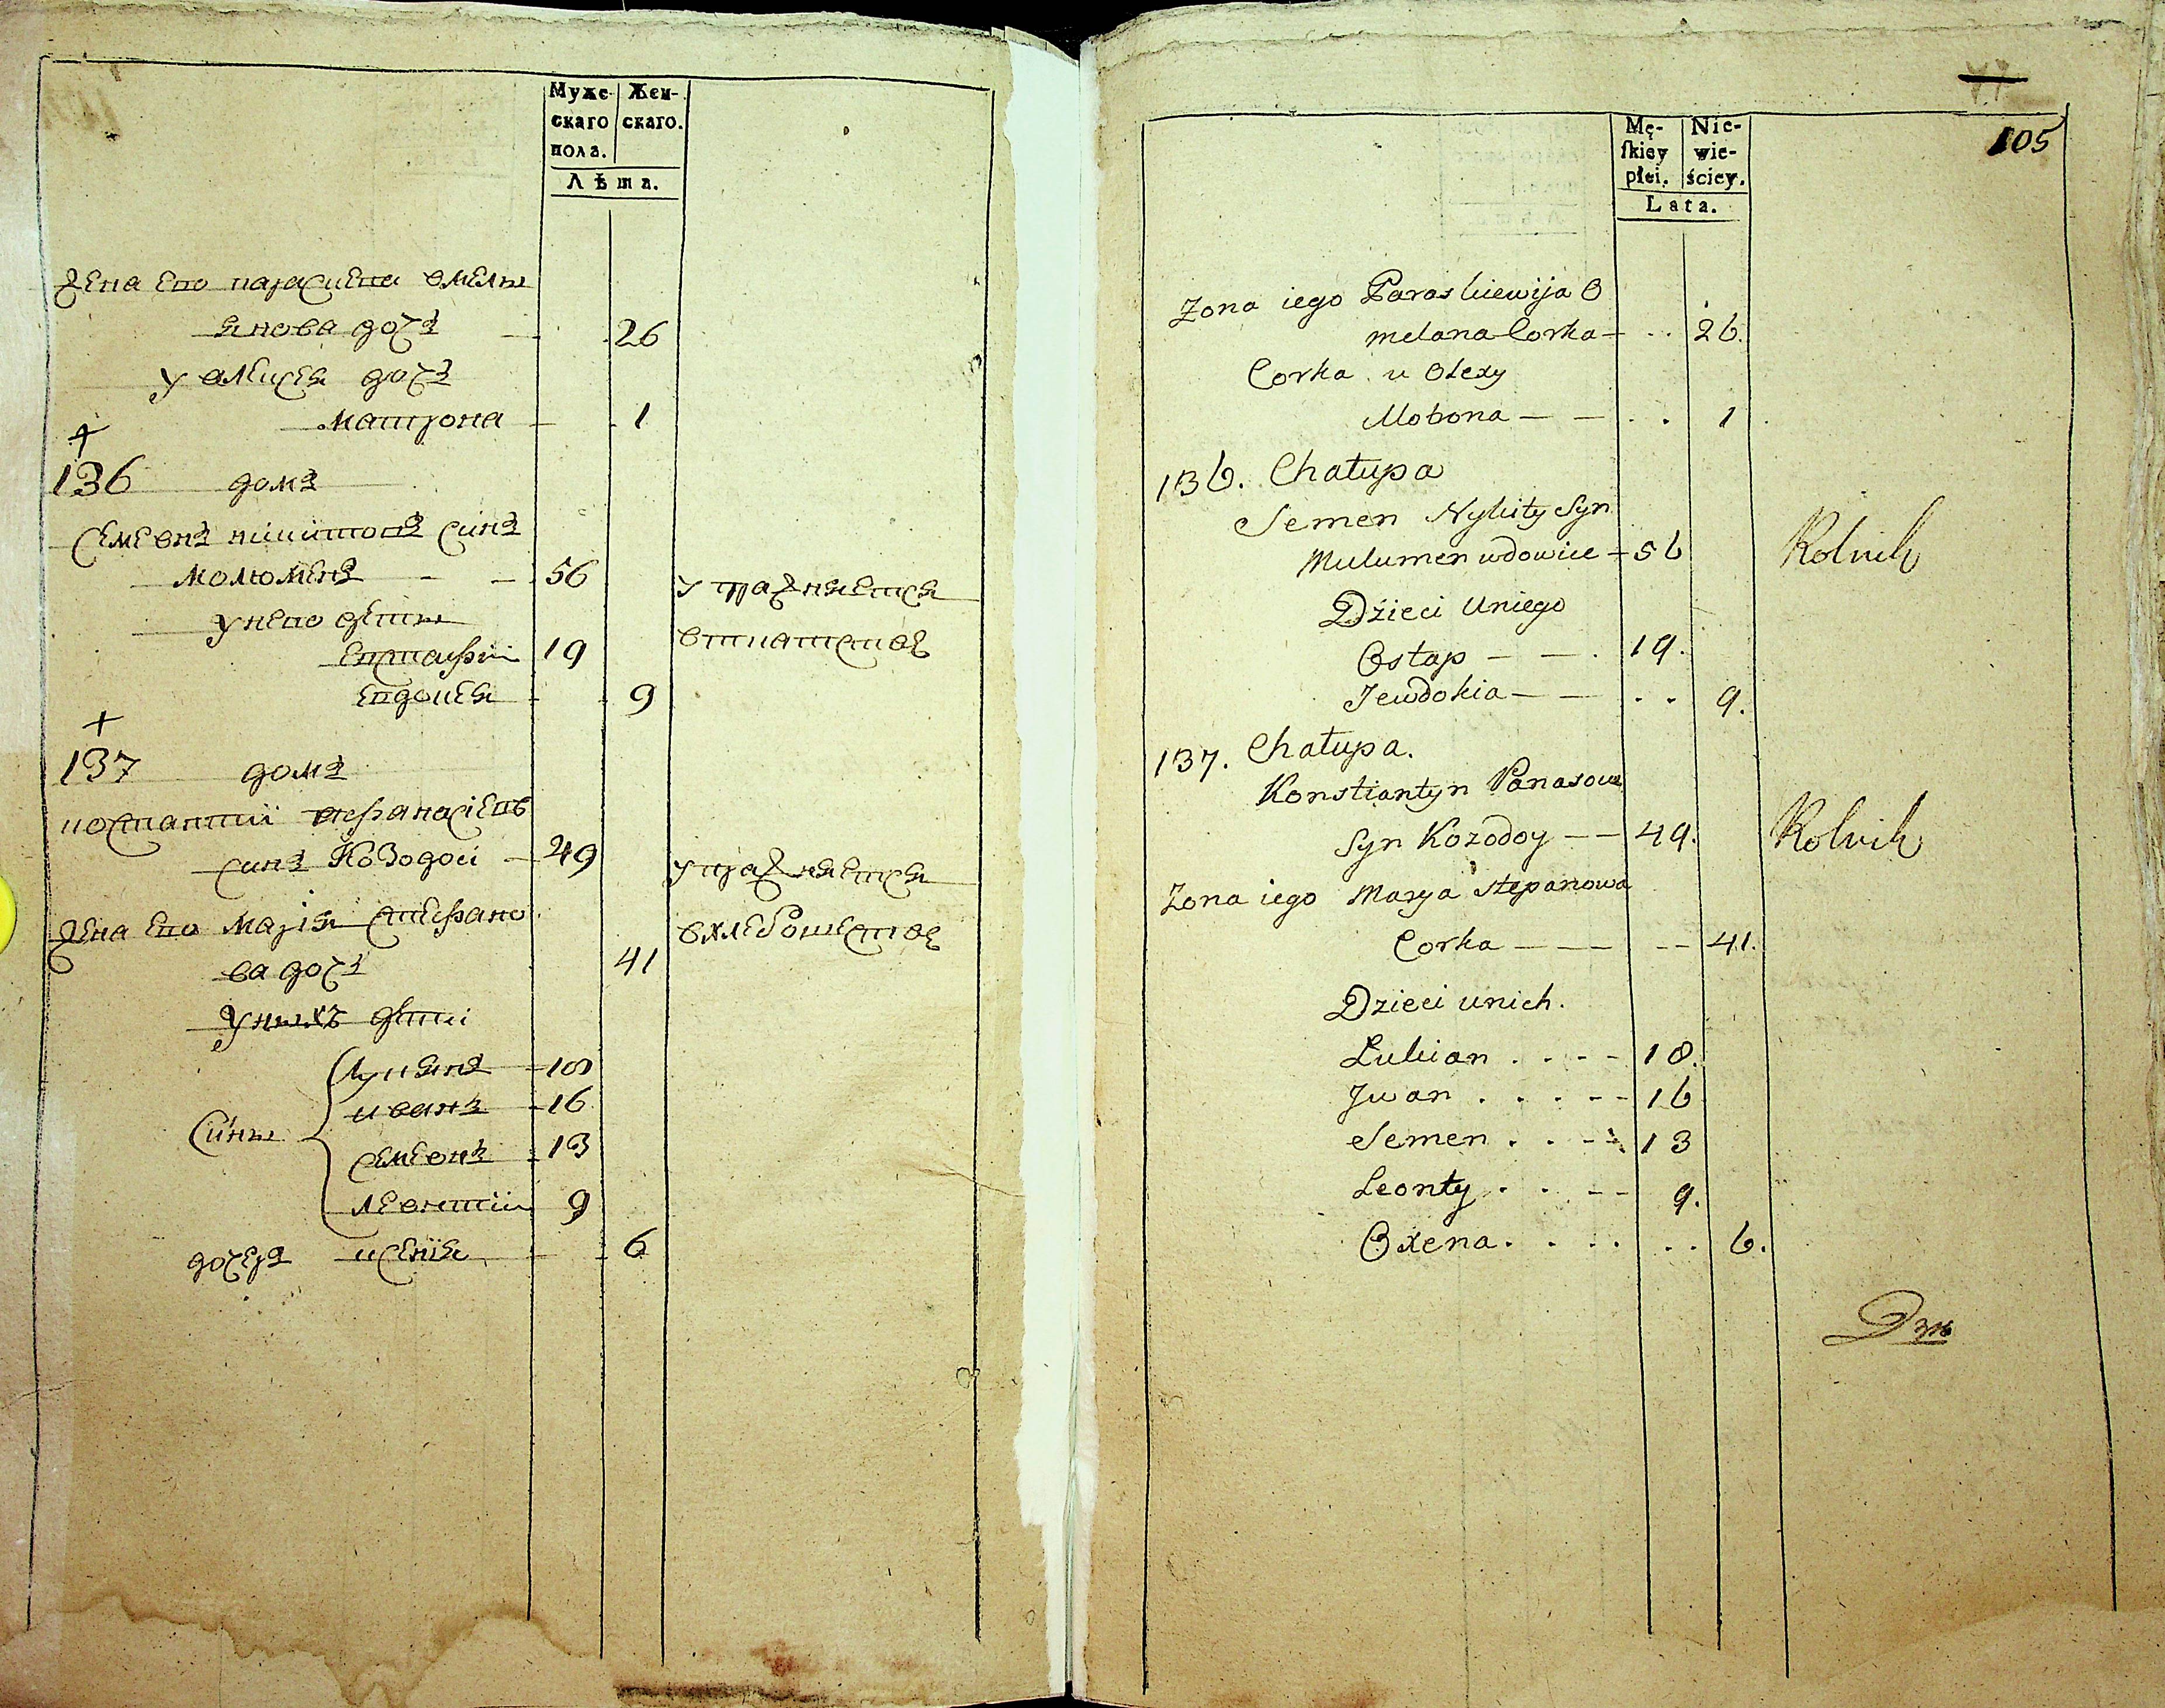 Муже-
скаго
пола.
Жен-
скаго.
Лѣта.
жена его параскева омелы
янова дочъ 26
у алексея дочъ
матрона 1
+
136 домъ
семеонъ никитовъ синъ
молюменъ 56
у него дѣти
евстафий 19
евдокея 9
упражняется
+
137 домъ
костантий афанасіевъ
синъ Козодой 49
упражняется
жена его марія стефано
ва дочъ 41
у ныхъ дѣти
сины
лукянъ 18
иванъ 16
семеонъ 13
леонтий 9
дочеръ ксенїя 6
105
Mę-
ſkiey
płei.
Nie-
wie-
ściey.
Lata.
Zona iego Paraskiewija O
melana Corka 26.
Corka u Olexy
Motrona 1
136. Chałupa
Semen Nykity Syn
Mulumen wdowiec 56 Rolnik
Dzieci Uniego
Ostap 19.
Jewdokia 9.
137. Chałupa.
Konstiantyn Panasow
Syn Kozodoy 49. Rolnik
Zona iego Marya Stepanowa
Corka 41.
Dzieci unich.
Lukian 18.
Jwan 16
Semen 13
Leonty 9.
Oxena 6.